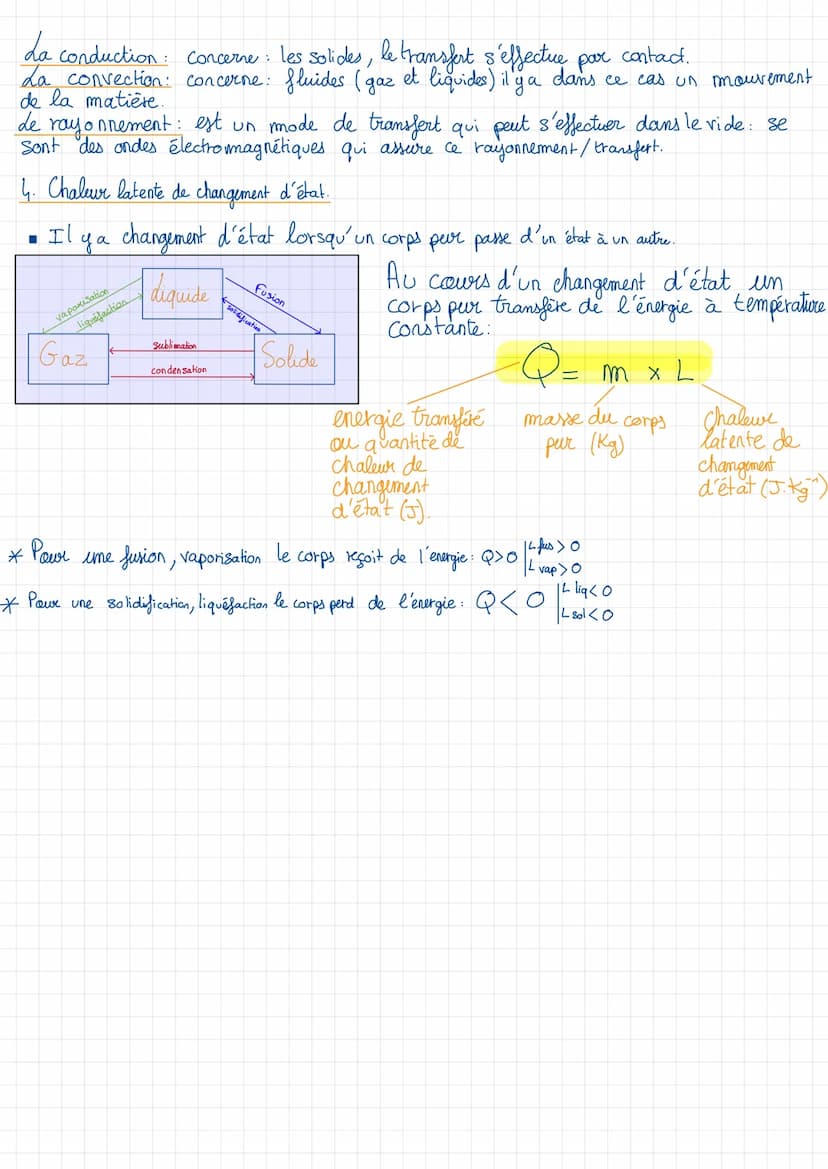 La conduction : concerne : les solides, le transfert s'effectue par contact.
La convection : concerne : fluides (gaz et liquides) il y a dans ce cas un mouvement
de la matière.
Le rayonnement : est un mode de transfert qui peut s'effectuer dans le vide : se
sont des ondes électromagnétiques qui assure ce rayonnement / transfert.
4. Chaleur latente de changement d'état.
▪ Il y a changement d'état lorsqu'un corps pur passe d'un état à un autre.
vaporisation
liquéfaction
Liquide
Fusion
solidification
Gaz
Sublimation
condensation
Solide
Au cours d'un changement d'état un
corps pur transfère de l'énergie à température
constante :
Q = m x L
energie transféré
ou quantité de
chaleur de
changement
d'état (J).
masse du corps
pur (Kg)
Chaleur
latente de
changement
d'état (J.Kg⁻¹)
* Pour une fusion, vaporisation le corps reçoit de l'energie : Q>0 | L fus > 0
L vap > 0
* Pour une solidification, liquéfaction le corps perd de l'énergie : Q < 0 | L liq < 0
L sol < 0